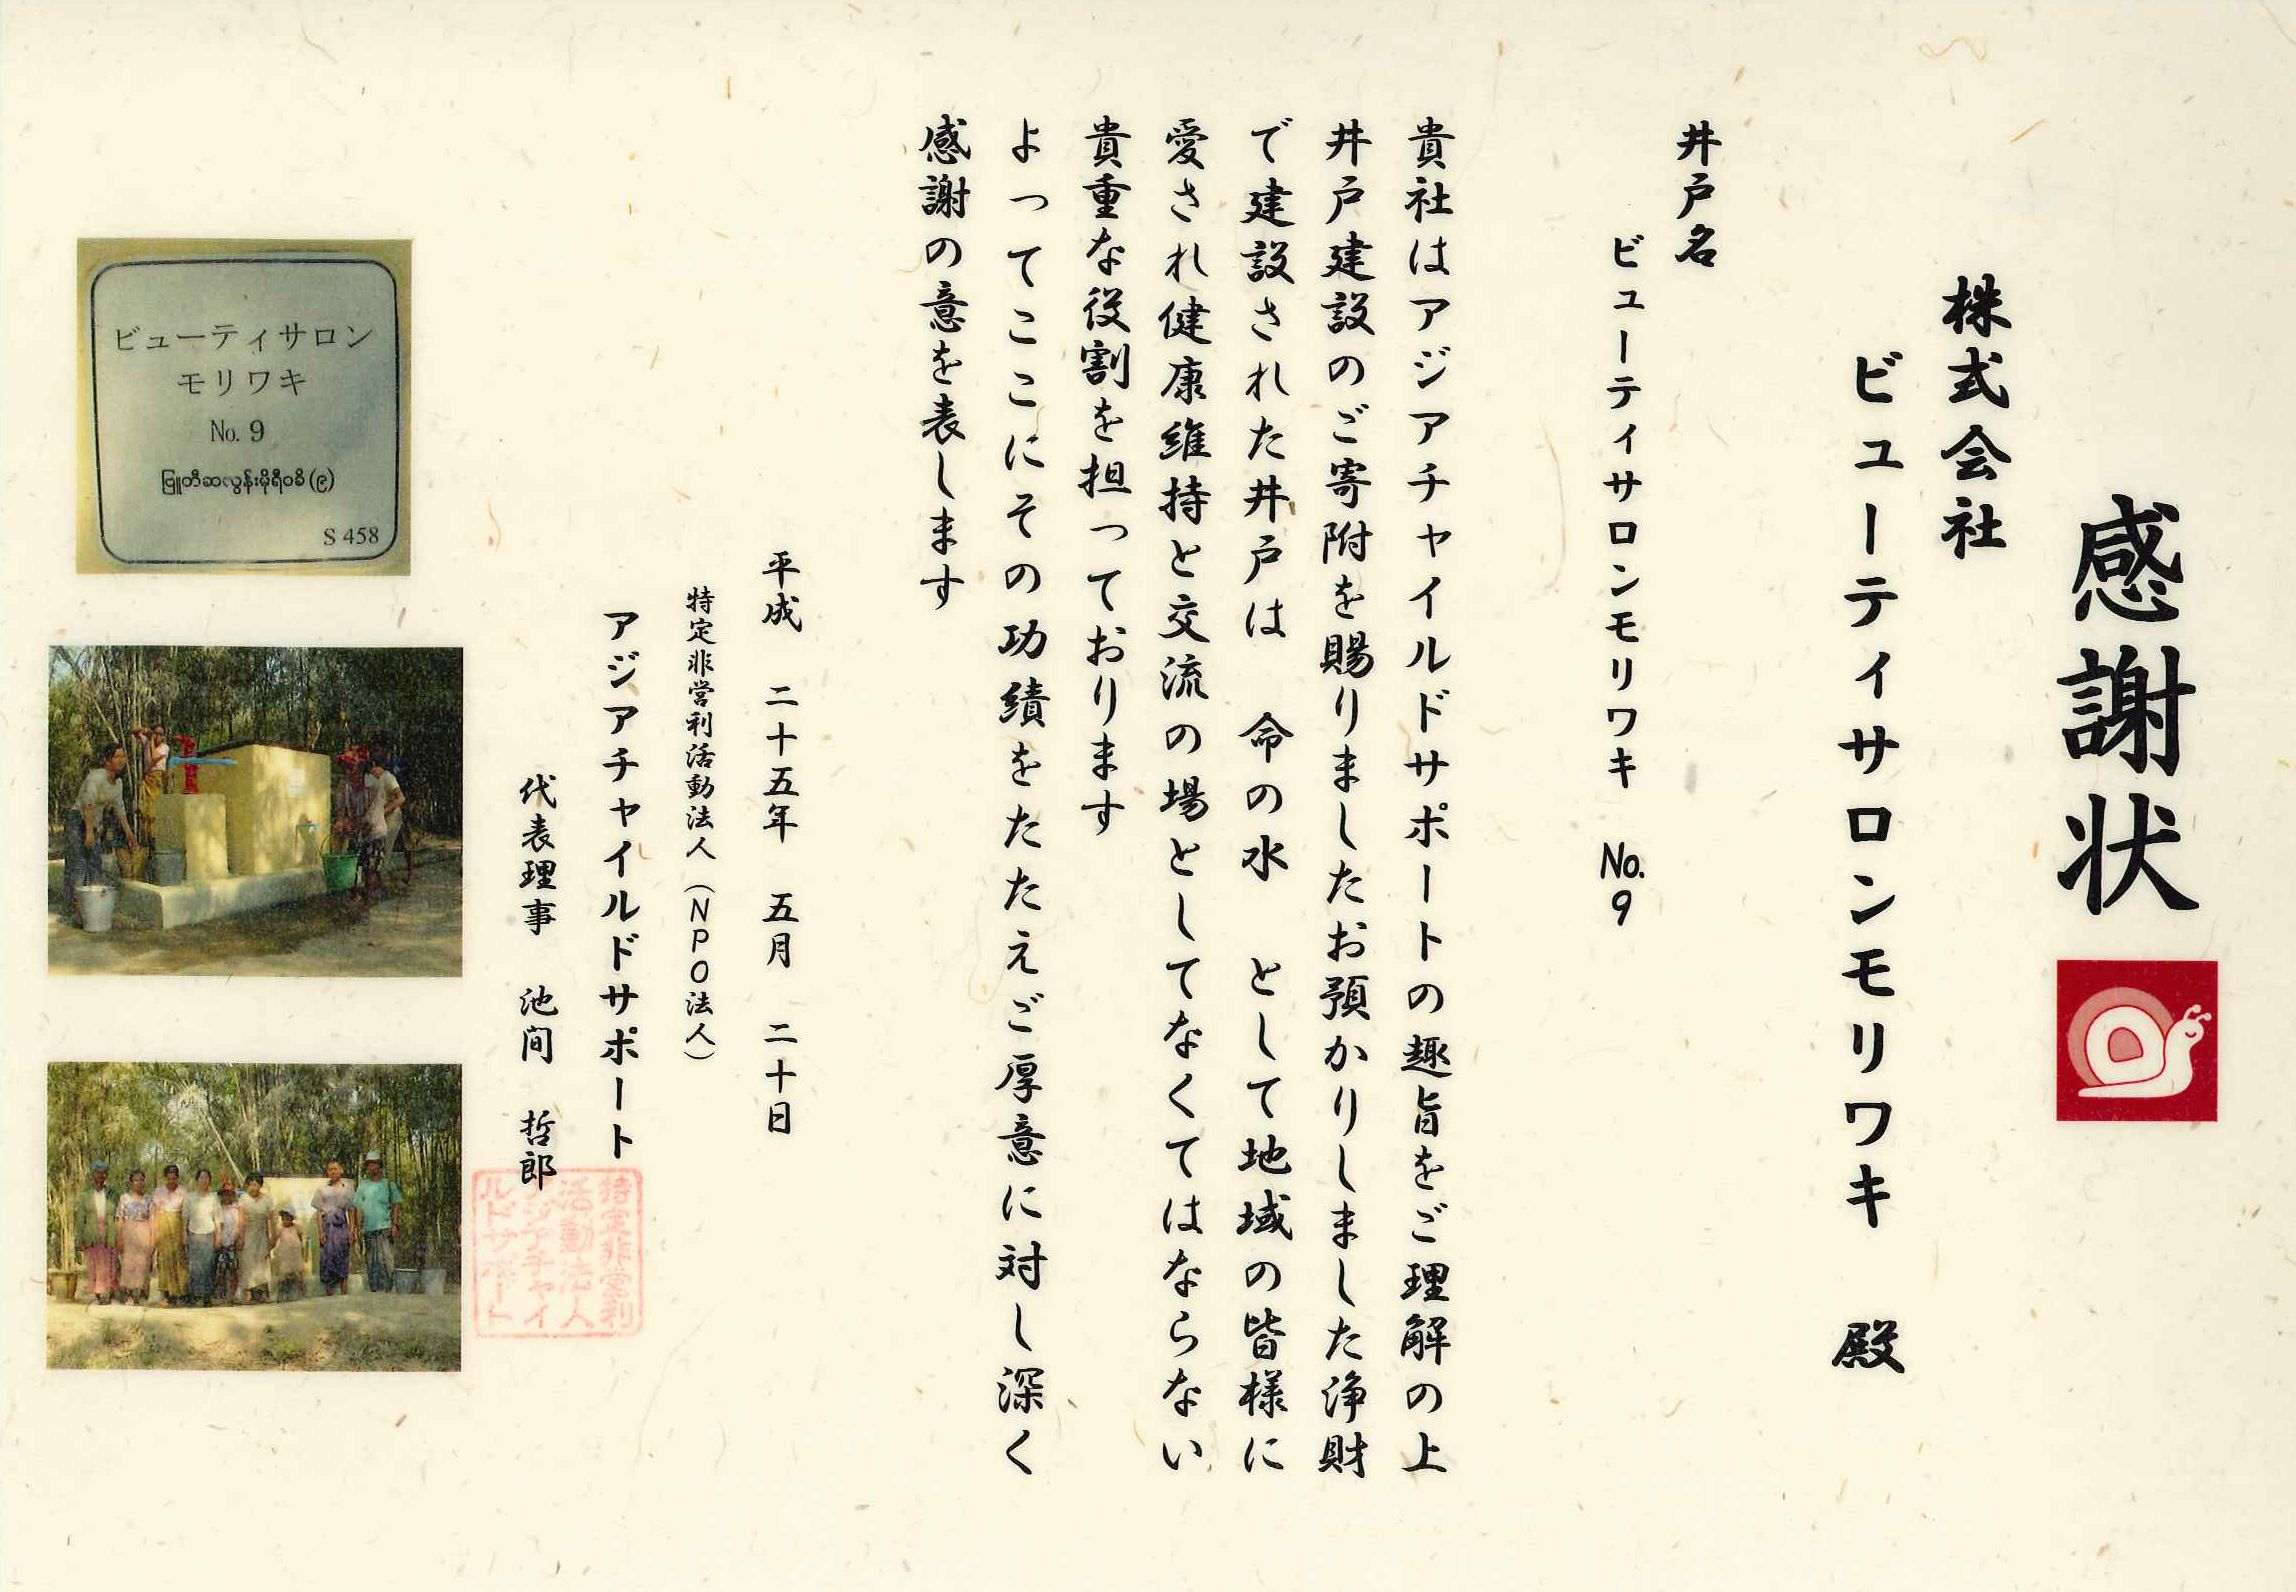 感謝状
株式会社
ビューティサロンモリワキ 殿
井戸名
ビューティサロンモリワキ No.9
貴社はアジアチャイルドサポートの趣旨をご理解の上
井戸建設のご寄附を賜りましたお預かりしました浄財
で建設された井戸は 命の水 として地域の皆様に
愛され健康維持と交流の場としてなくてはならない
貴重な役割を担っております
よってここにその功績をたたえご厚意に対し深く
感謝の意を表します
平成 二十五年 五月 二十日
特定非営利活動法人(NPO法人)
アジアチャイルドサポート
代表理事 池間 哲郎
特定非営利
活動法人
アジアチャイ
ルドサポート
ビューティサロン
モリワキ
No. 9
ဗြူတီဆလွန်းမိုရီဝခိ (၉)
S 458